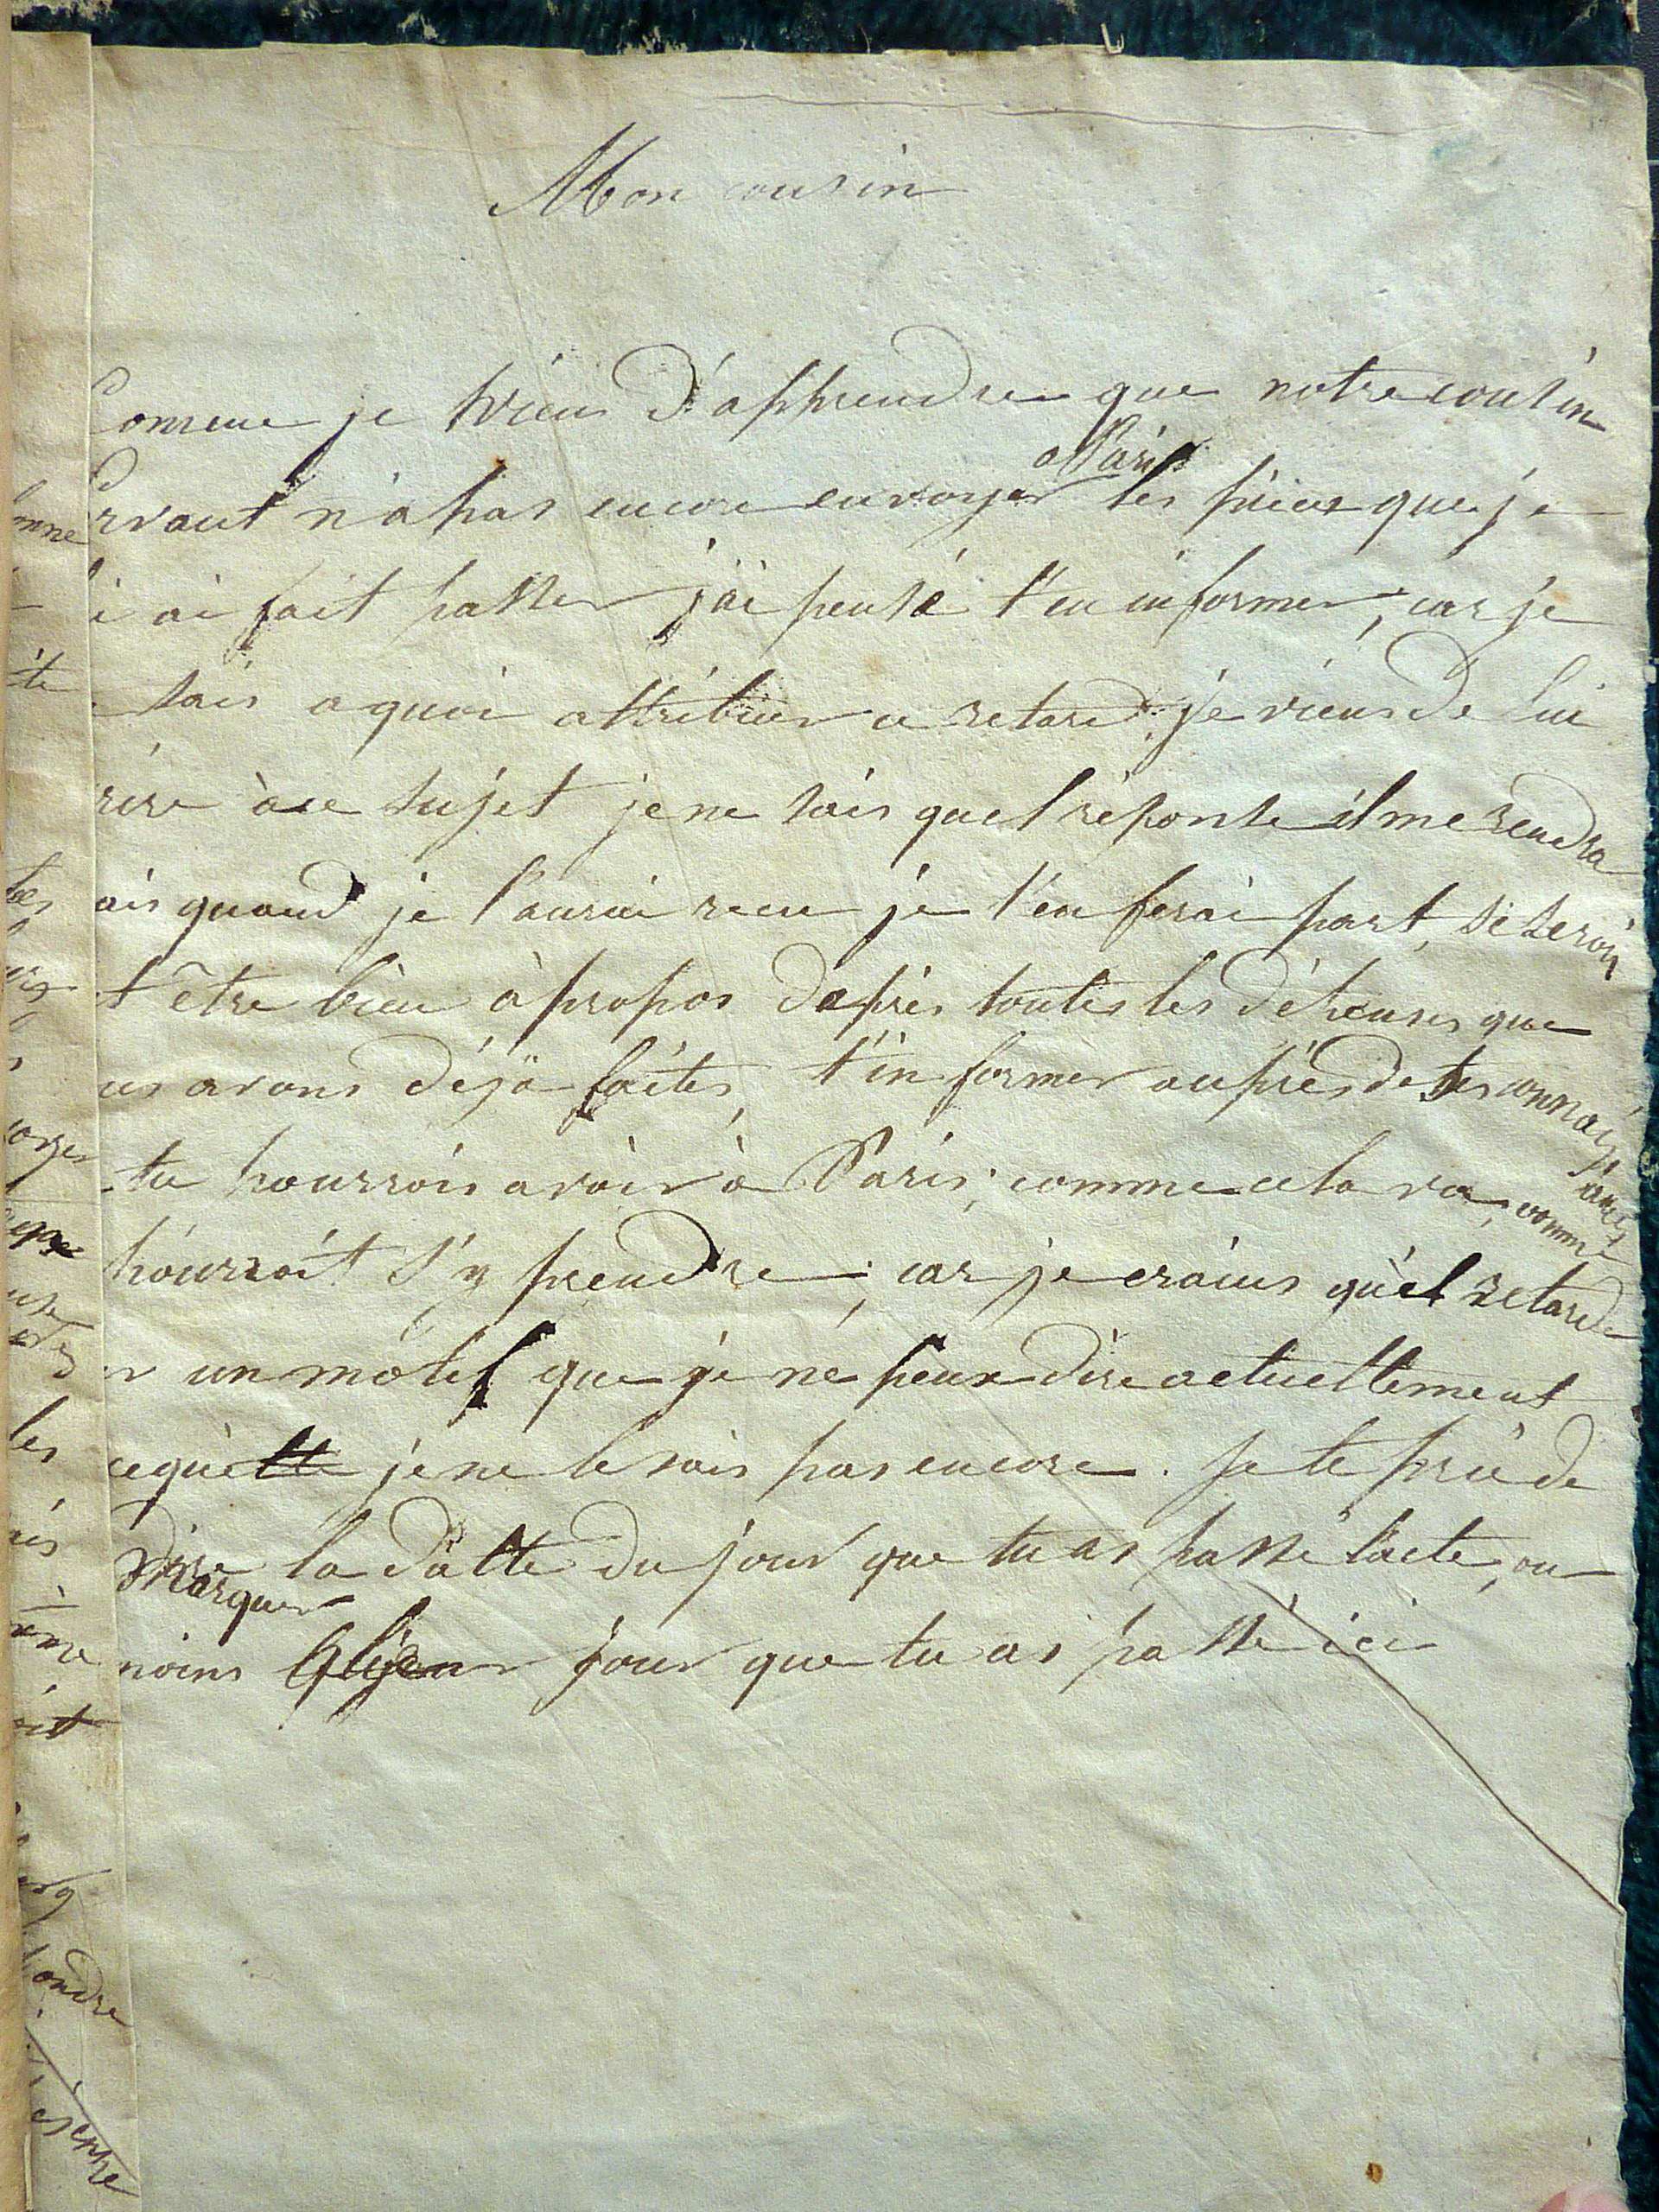 Mon cousin
Comme je vien d'apprendre que notre cousin
a Paris
n'a pas encore envoyer les pieces que je
i ai fait passer j'ai pensé t'en informer, car je
sais a quoi attribuer ce retard; je viens de lui
rire à ce sujet je ne sais quel réponse il me rendra
ais quand je l'aurai recu je t'en ferai part, si seroit
t être bien à propos daprès toutes les dépenses que
us avons déjà faites, t'informer auprès de tes connais
sances
tu pourrois avoir à Paris; comme cela va, comme
pourroit s'y prendre; car je crains qu'el retarde
r un motif que je ne peux dire actuellement
ce que je ne le sais pas encore. Je te prie de
dire la datte du jour que tu as passé l'acte, ou
marquer
moins jour que tu as passé ici